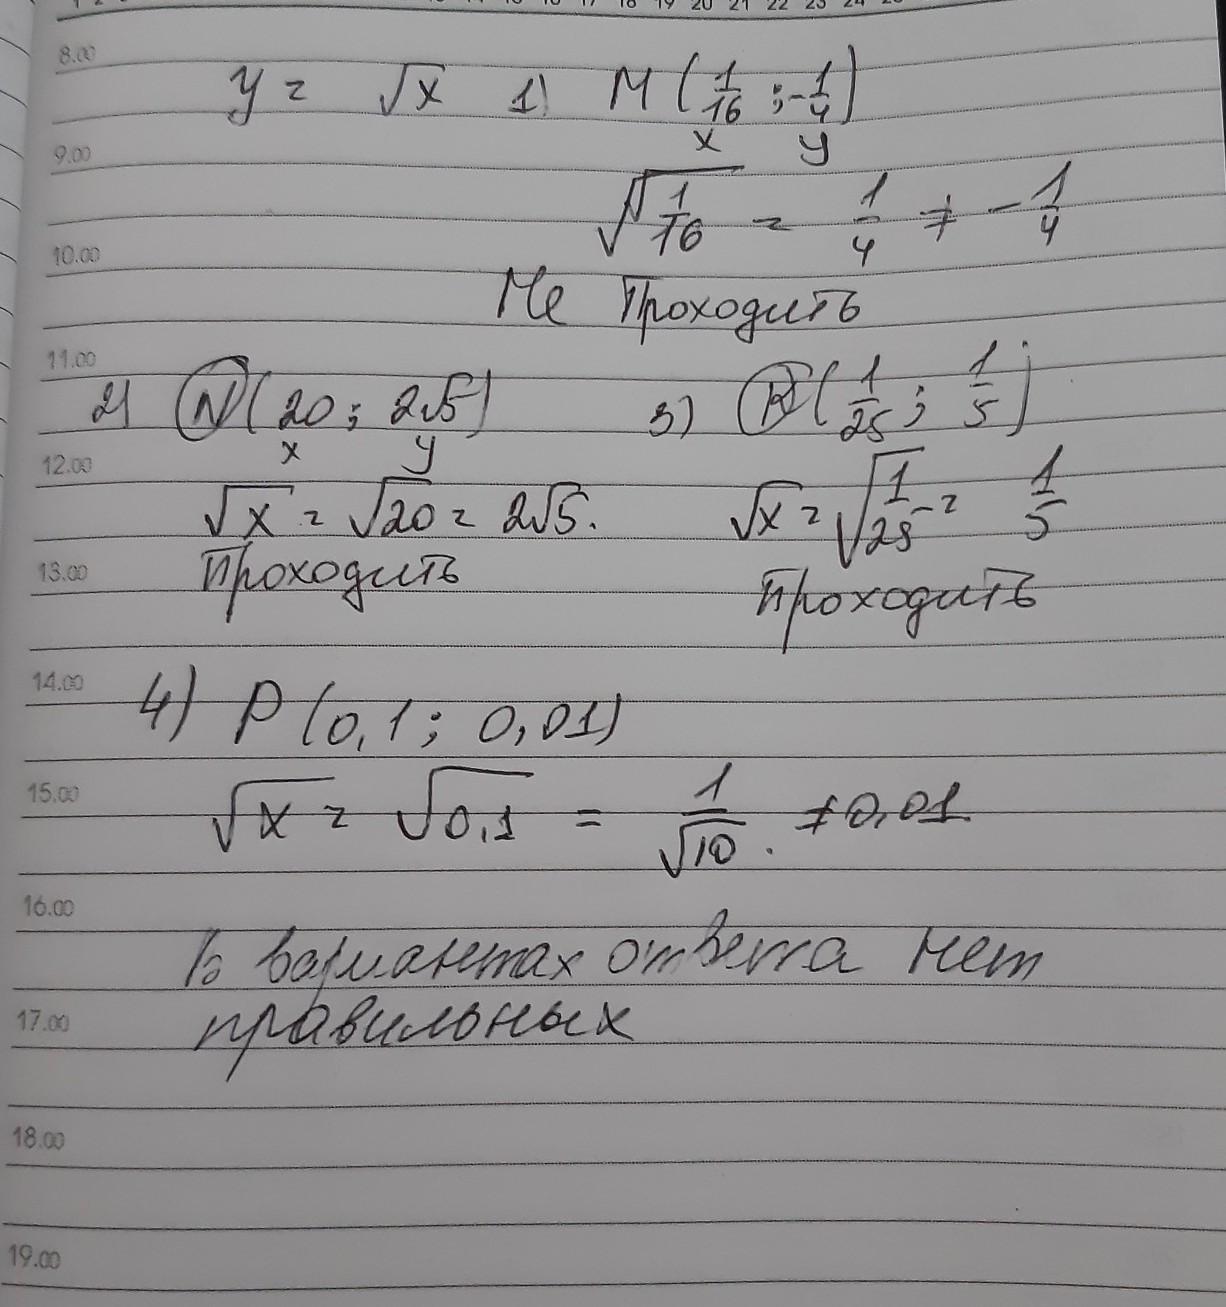 17 18 19 20 21 22 23 24
8.00
y = √x 1) M (1/16 ; -1/4)
x y
9.00
√1/16 = 1/4 ≠ - 1/4
10.00
Не проходить
11.00
2) N (20 ; 2√5) 3) (1/25 ; 1/5)
x y
12.00
√x = √20 = 2√5. √x = √1/25 = 1/5
13.00
проходить проходить
14.00
4) P (0,1 ; 0,01)
15.00
√x = √0,1 = 1/√10 . ≠ 0,01
16.00
В вариантах ответа нет
17.00
правильных
18.00
19.00